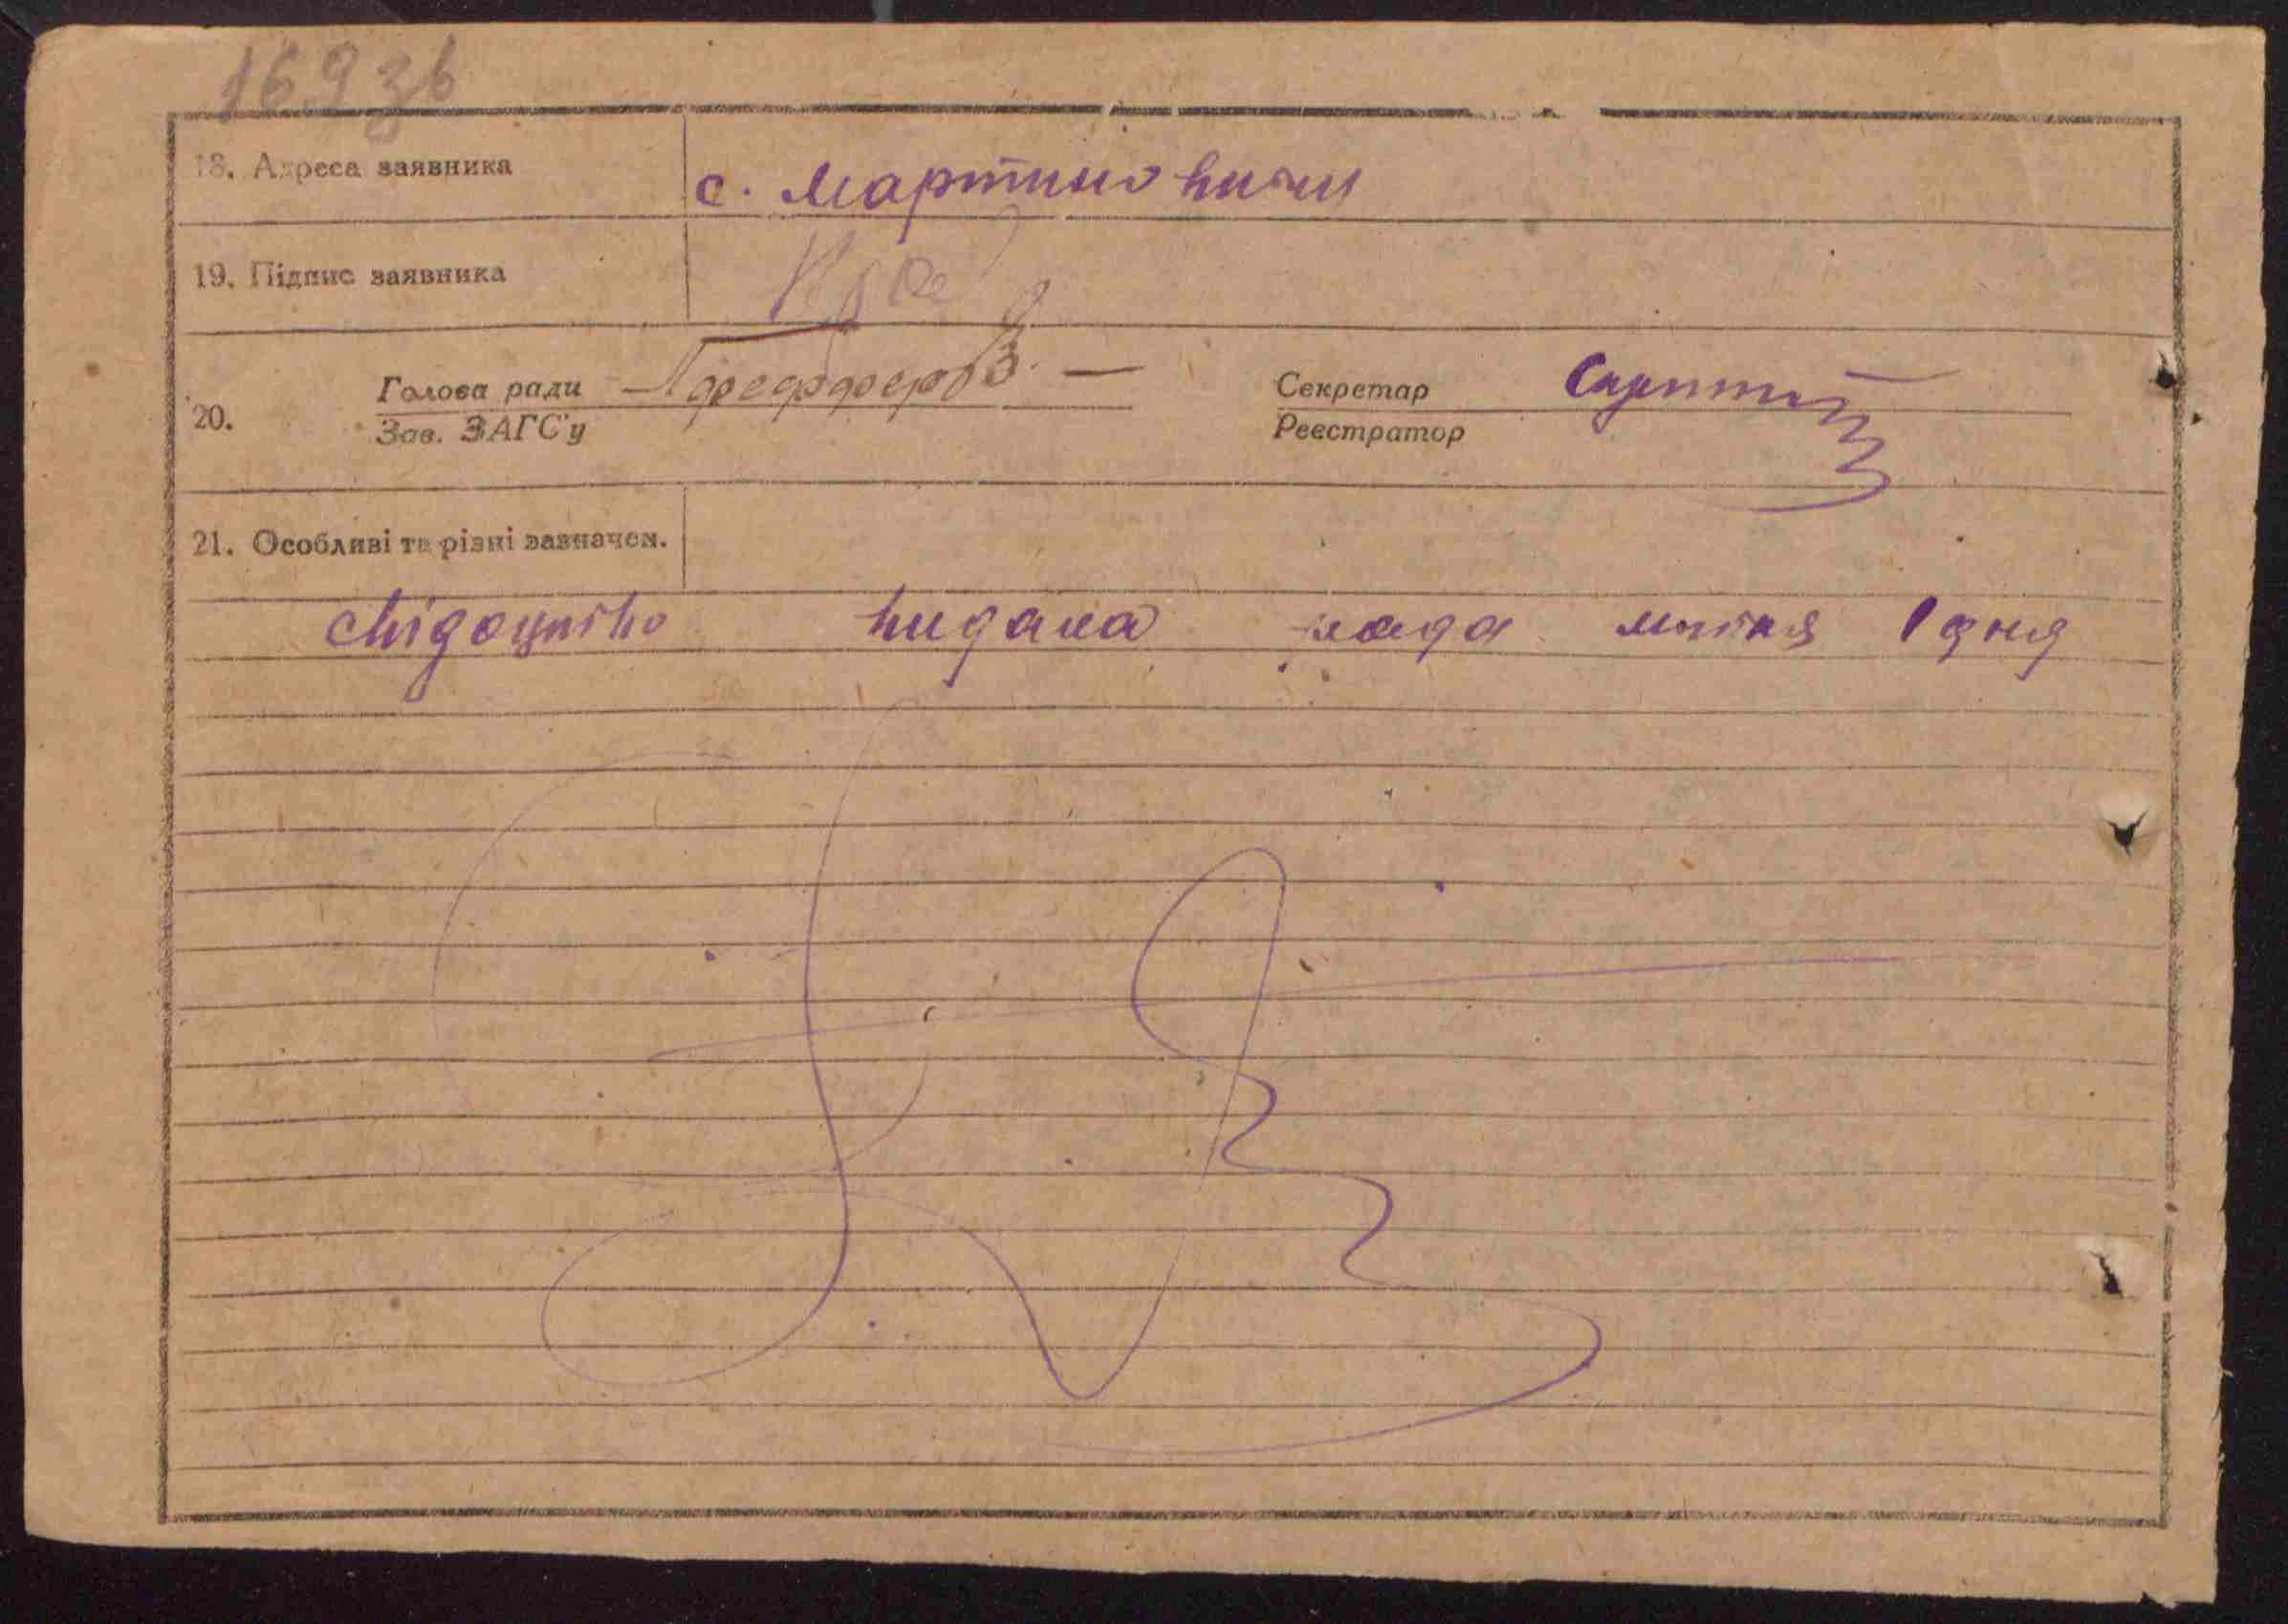 169 зв
18. Адреса заявника с. Мартиновичи
19. Підпис заявника
20. Голова ради Секретар
Зав. ЗАГС'у Реєстратор
21. Особливі та різні зазначен.
свідоцтво видана 1 дня